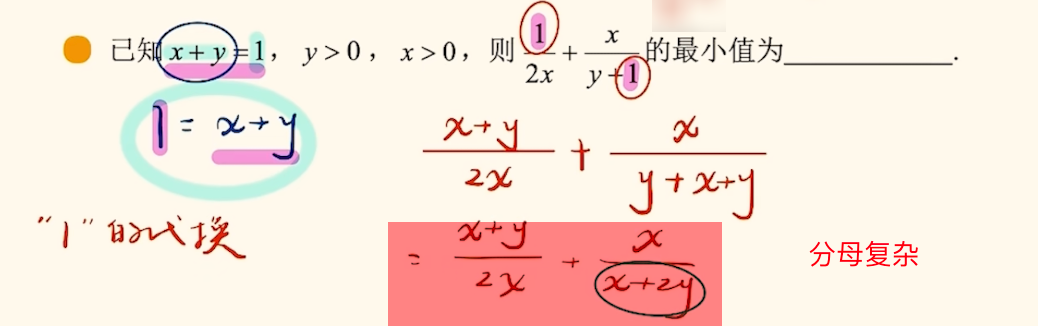 已知 x + y = 1, y > 0, x > 0, 则 1/2x + x/(y+1) 的最小值为____________.
1 = x+y
(x+y)/2x + x/(y+x+y)
"1"的代换
= (x+y)/2x + x/(x+2y)
分母复杂